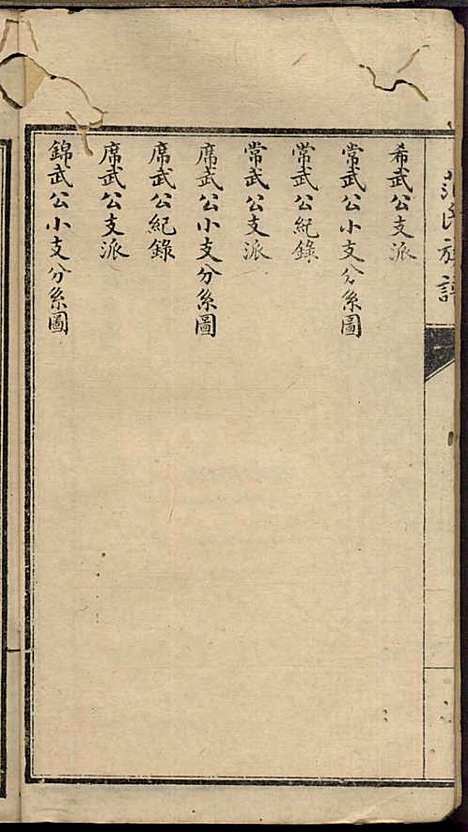 范氏族譜
希武公支派
常武公小支分系圖
常武公紀錄
常武公支派
席武公小支分系圖
席武公紀錄
席武公支派
錦武公小支分系圖